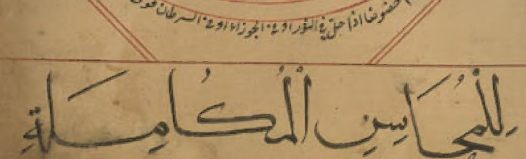 خصوصًا اذا حل في الثور او في الجوزاء او في السرطان فوق
لِلْمَحَاسِنِ الْمُكَامِلَةِ